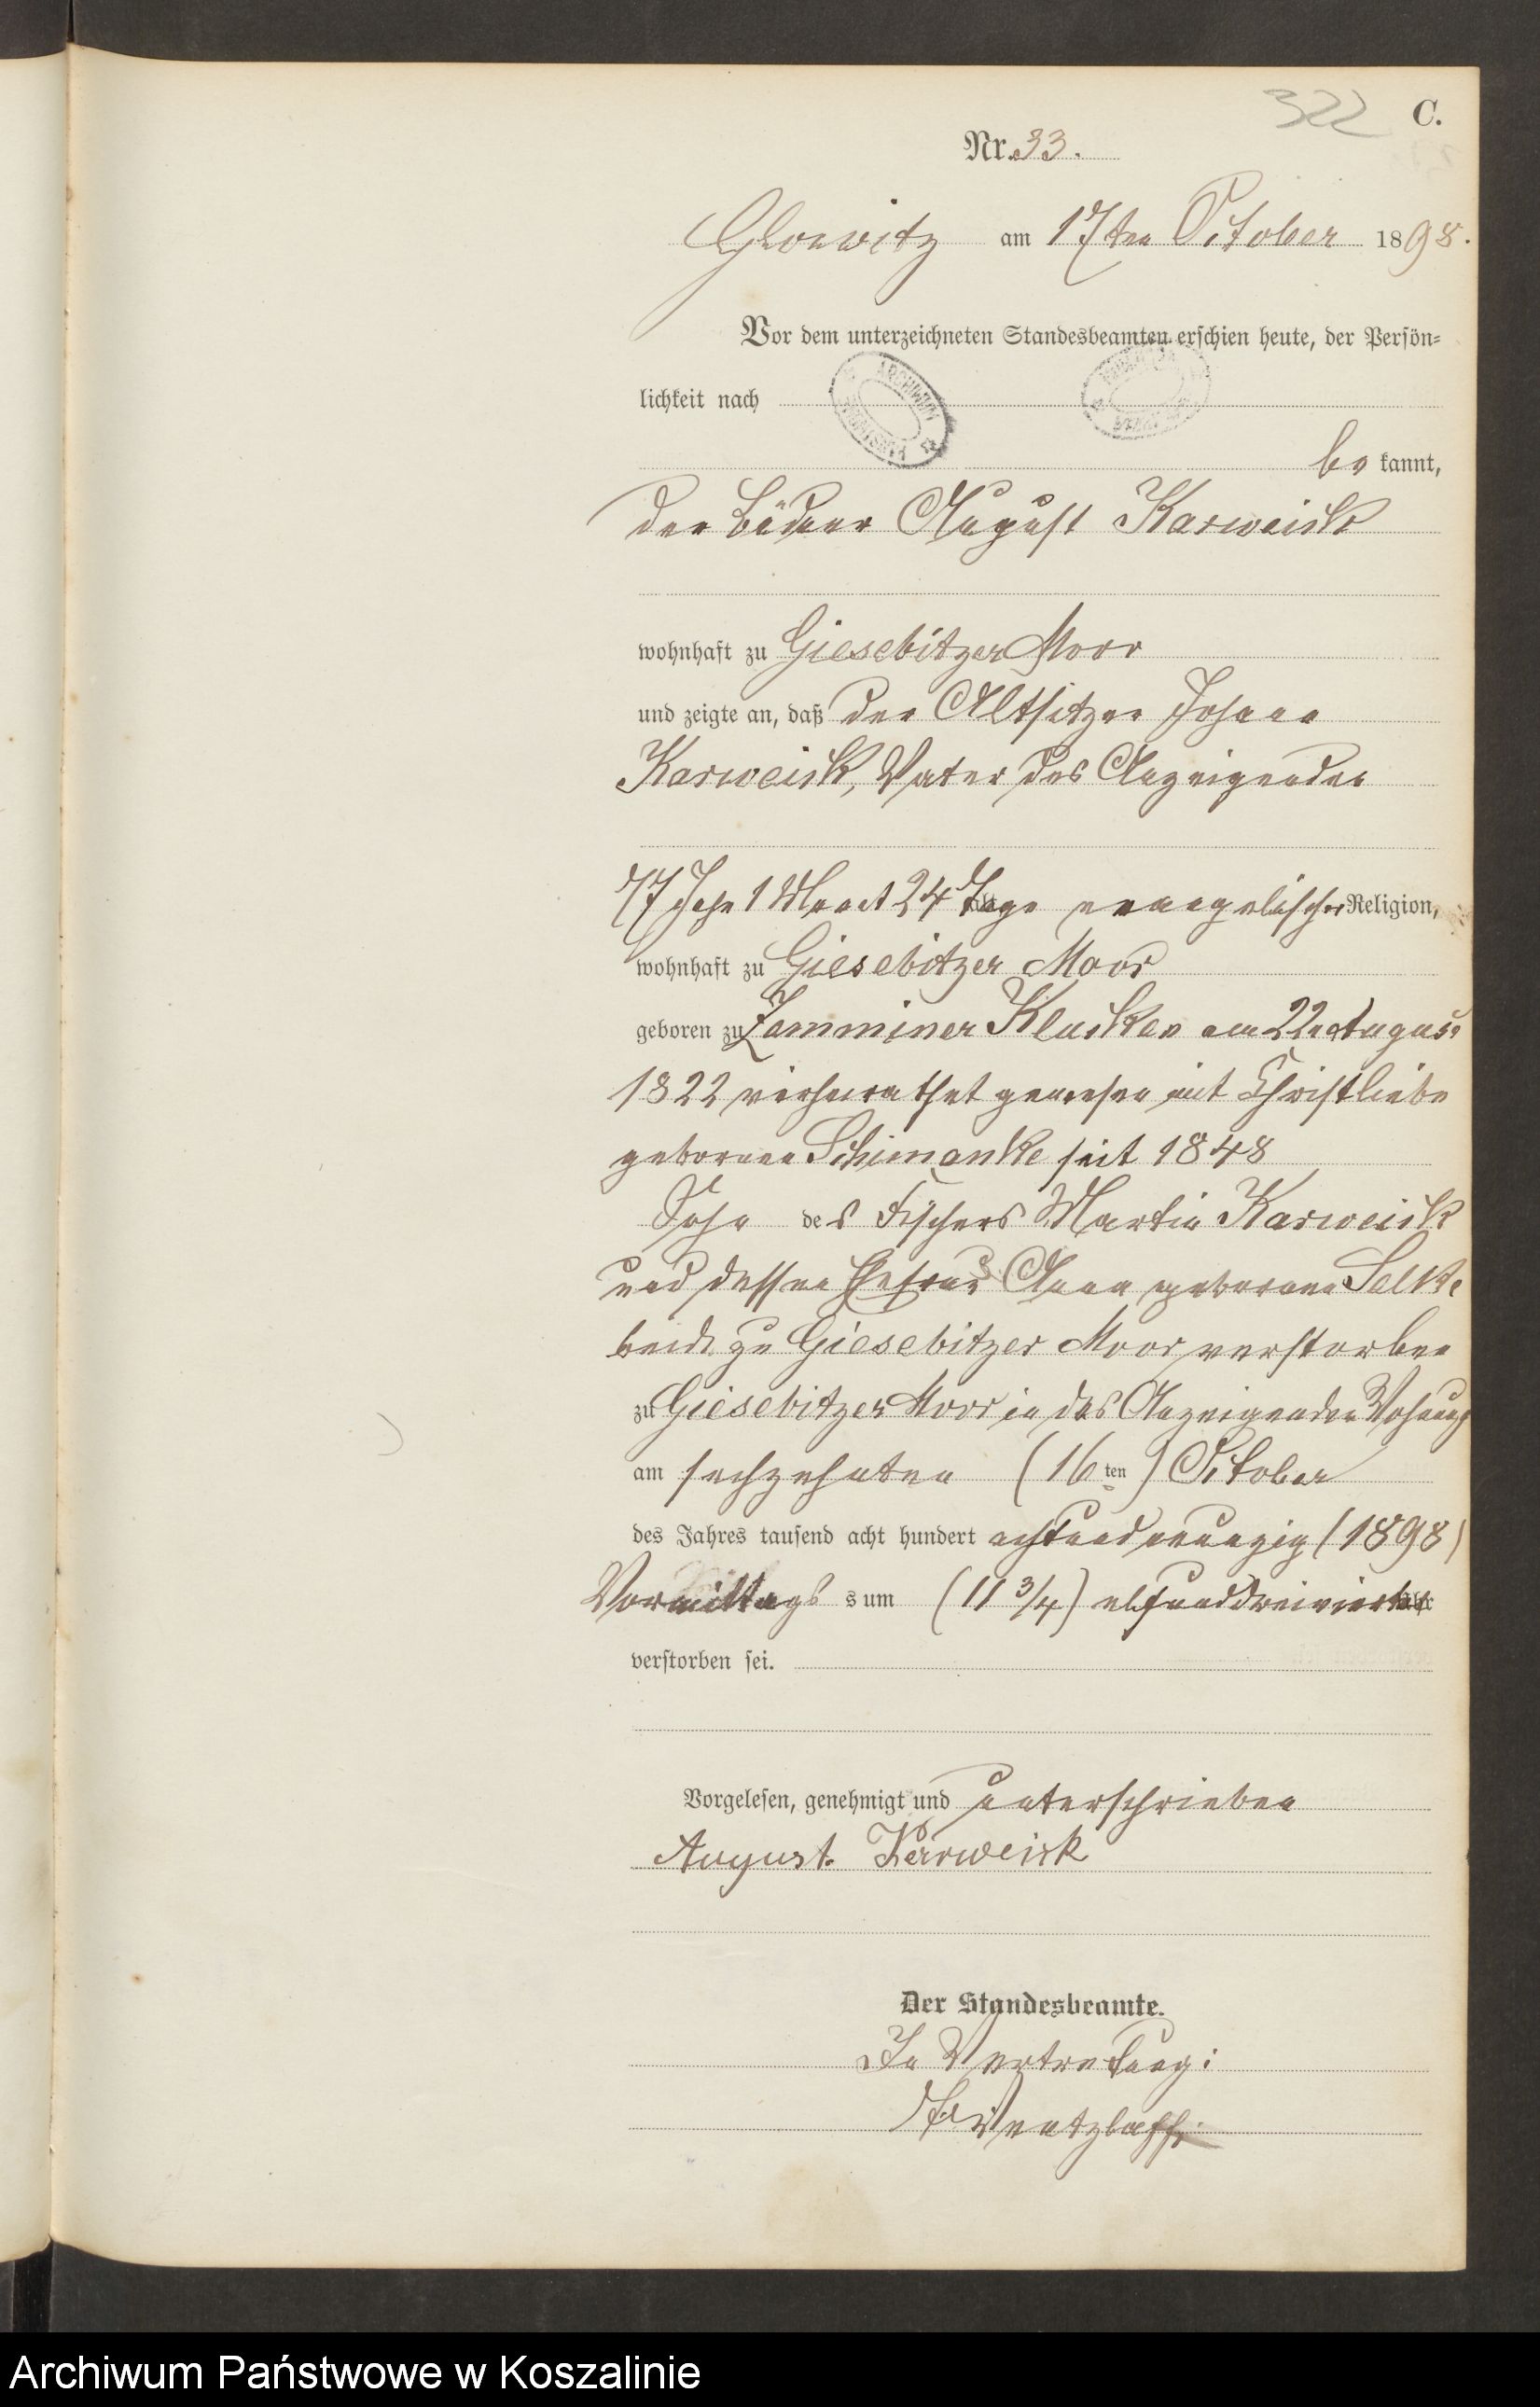 322
C.
Nr. 33.
Glowitz am 17ten October 1898.
Vor dem unterzeichneten Standesbeamten erschien heute, der Persön=
lichkeit nach
ARCHIWUM
be kannt,
der Büdner August Karweick
wohnhaft zu Giesebitzer Moor
und zeigte an, daß der Altsitzer Johann
Karweick, Vater des Anzeigenden
77 Jahr 1 Monat 24 Tage evangelischer Religion,
wohnhaft zu Giesebitzer Moor
geboren zu Zemminer Klucken am 22 August
1822 verheirathet gewesen mit Christliebe
geborenen Schimanke seit 1848
Sohn des Fischers Martin Karweick
und dessen Ehefrau Anna geborene Selke
beide zu Giesebitzer Moor verstorben
zu Giesebitzer Moor in des Anzeigenden Wohnung
am sechzehnten (16 ten) October
des Jahres tausend acht hundert achtundneunzig (1898)
Vormittags s um (11 3/4) elfunddreiviertel
verstorben sei.
Vorgelesen, genehmigt und unterschrieben
August Karweick
Der Standesbeamte.
In Vertretung:
Wentzlaff.
Archiwum Państwowe w Koszalinie